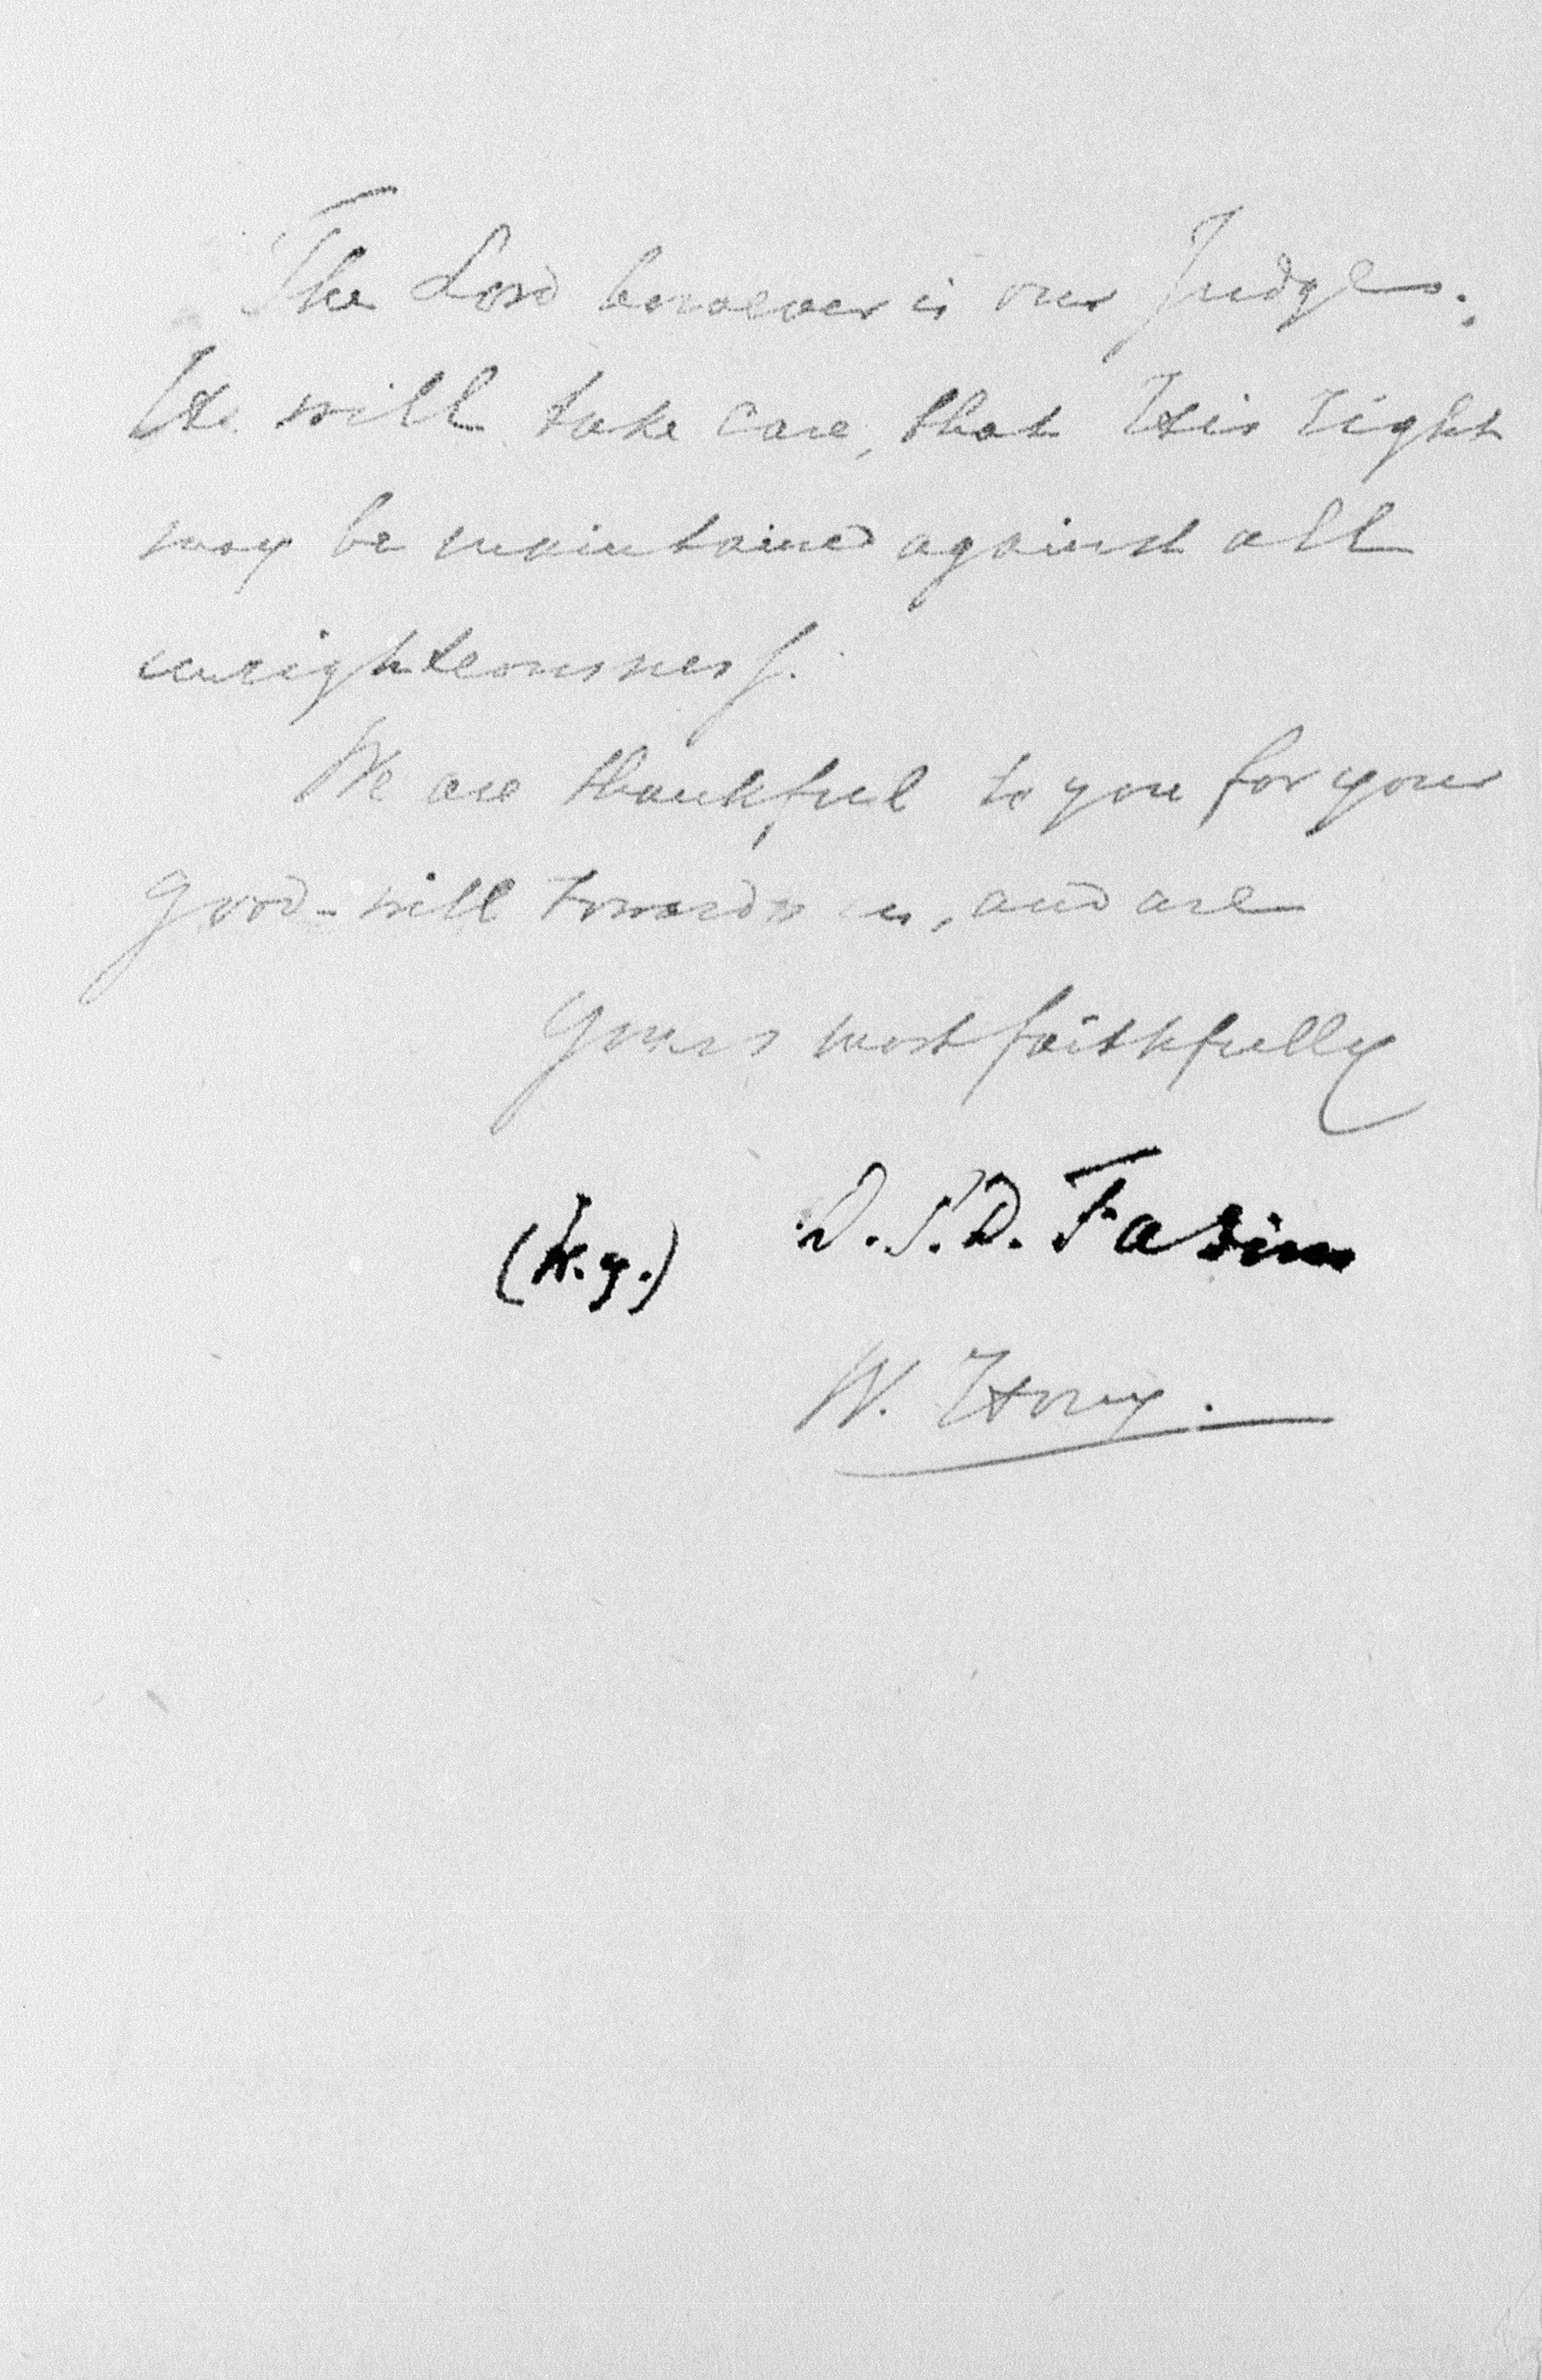 The Lord however is our Judge.
He will take care, that His right
may be maintained against all
unrighteousness.
We are thankful to you for your
good-will towards us, and are
Yours most faithfully
D. S. D.
W.